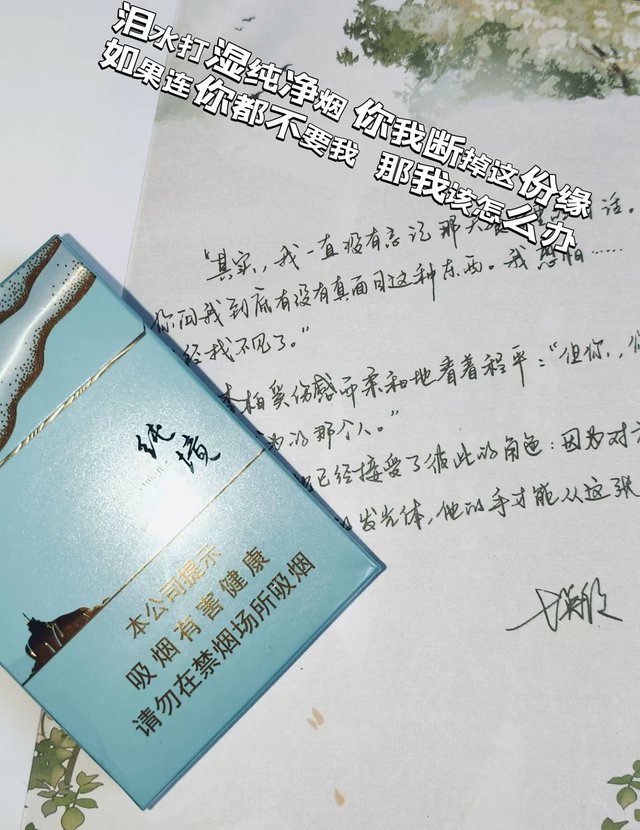 泪水打湿纯净烟 你我断掉这份缘
如果连你都不要我 那我该怎么办
话。
“其实,我一直没有忘记那天
你问我到底有没有真面目这种东西。我恐怕……
经找不见了。”
李柏奚伤感而柔和地看着程平:“但你,
为的那个人。”
已经接受了彼此的角色:因为对
发光体,他的手才能从这张
纯境
本公司提示
吸烟有害健康
请勿在禁烟场所吸烟